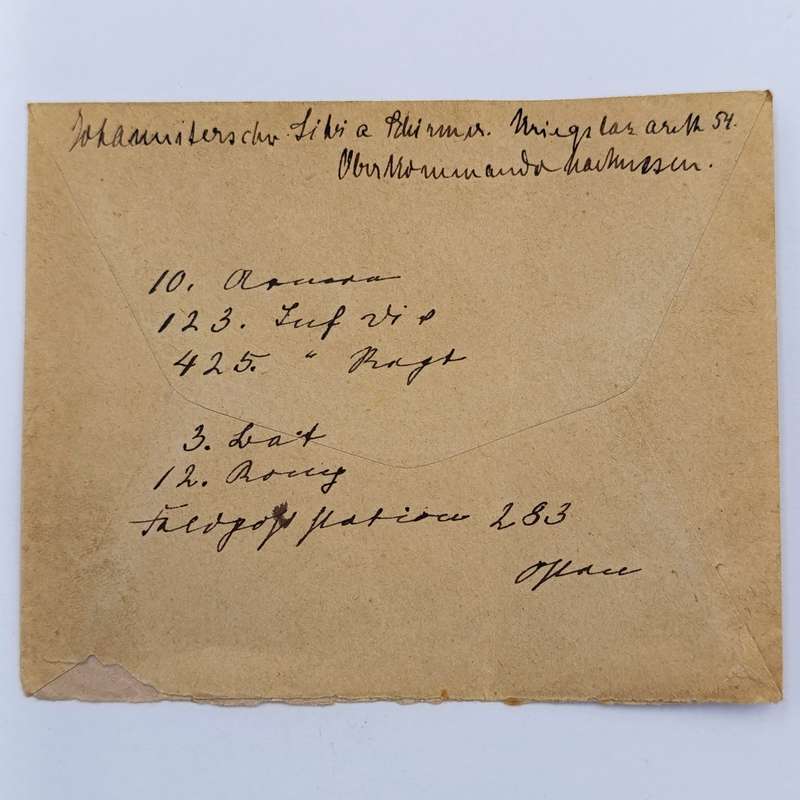 Johanniterschw. Silvia Schirmer. Kriegslazareth 54.
Oberkommando
10. Armee
123. Inf Div
425. " Regt
3. Bat
12. Komp
Feldpoststation 283
Osten